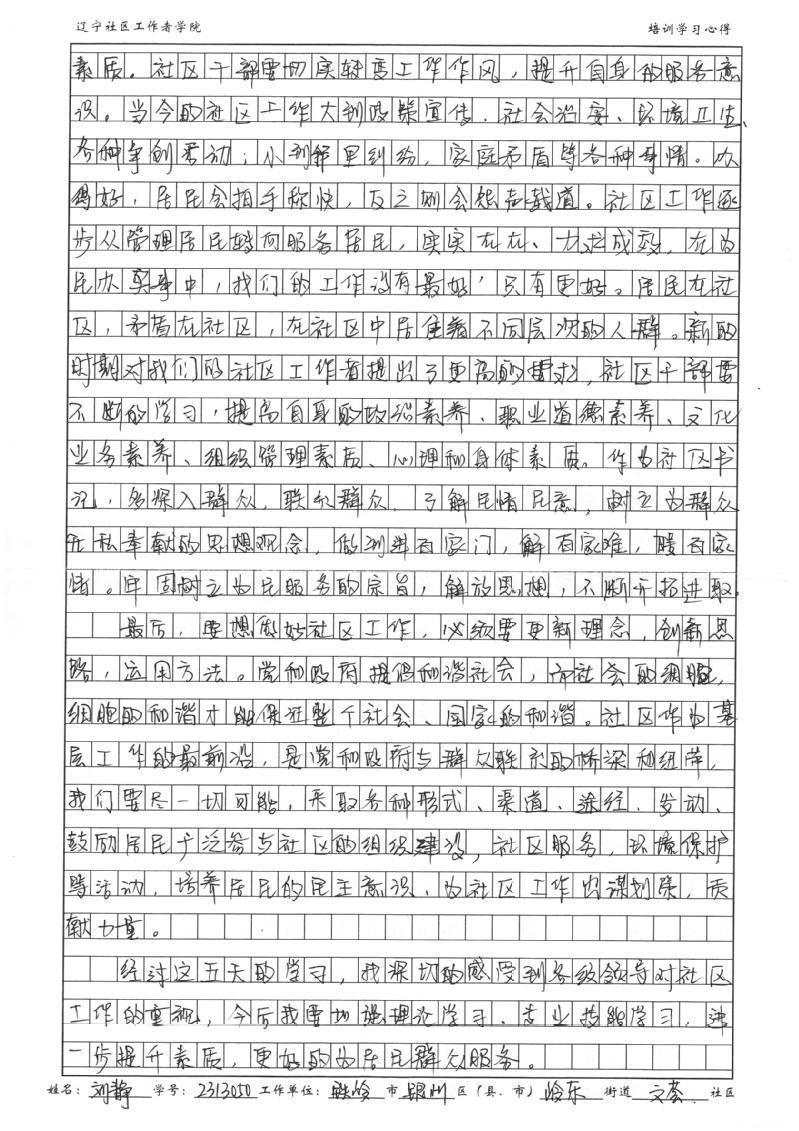 辽宁社区工作者学院 培训学习心得
素质。社区干部要切实转变工作作风，提升自身的服务意
识。当今的社区工作大到政策宣传、社会治安、环境卫生、
各种争创活动；小到解里纠纷，家庭矛盾等各种事情。办
得好，居民会拍手称快，反之则会怨声载道。社区工作逐
步从管理居民转向服务居民，实实在在、力求成效，在为
民办实事中，我们的工作没有最好，只有更好。居民在社
区，矛盾在社区，在社区中居住着不同层次的人群。新的
时期对我们的社区工作者提出了更高的要求，社区干部要
不断的学习，提高自身的政治素养、职业道德素养、文化
业务素养、组织管理素质、心理和身体素质。作为社区书
记，多深入群众，联系群众，了解民情民意，树立为群众
无私奉献的思想观念，做到进百家门，解百家难，暖百家
情。牢固树立为民服务的宗旨，解放思想，不断开拓进取。
最后，要想做好社区工作，必须要更新理念，创新思
路，运用方法。党和政府提倡和谐社会，而社会的细胞，
细胞的和谐才能保证整个社会、国家的和谐。社区作为基
层工作的最前沿，是党和政府与群众联系的桥梁和纽带，
我们要尽一切可能，采取各种形式、渠道、途经、发动、
鼓励居民广泛参与社区的组织建设，社区服务，环境保护
等活动，培养居民的民主意识、为社区工作出谋划策，贡
献力量。
经过这五天的学习，我深切的感受到各级领导对社区
工作的重视，今后我要加强理论学习、专业技能学习，进
一步提升素质，更好的为居民群众服务。
姓名：刘静 学号：2313050 工作单位：铁岭 市 银州 区（县、市）岭东 街道 文荟 社区